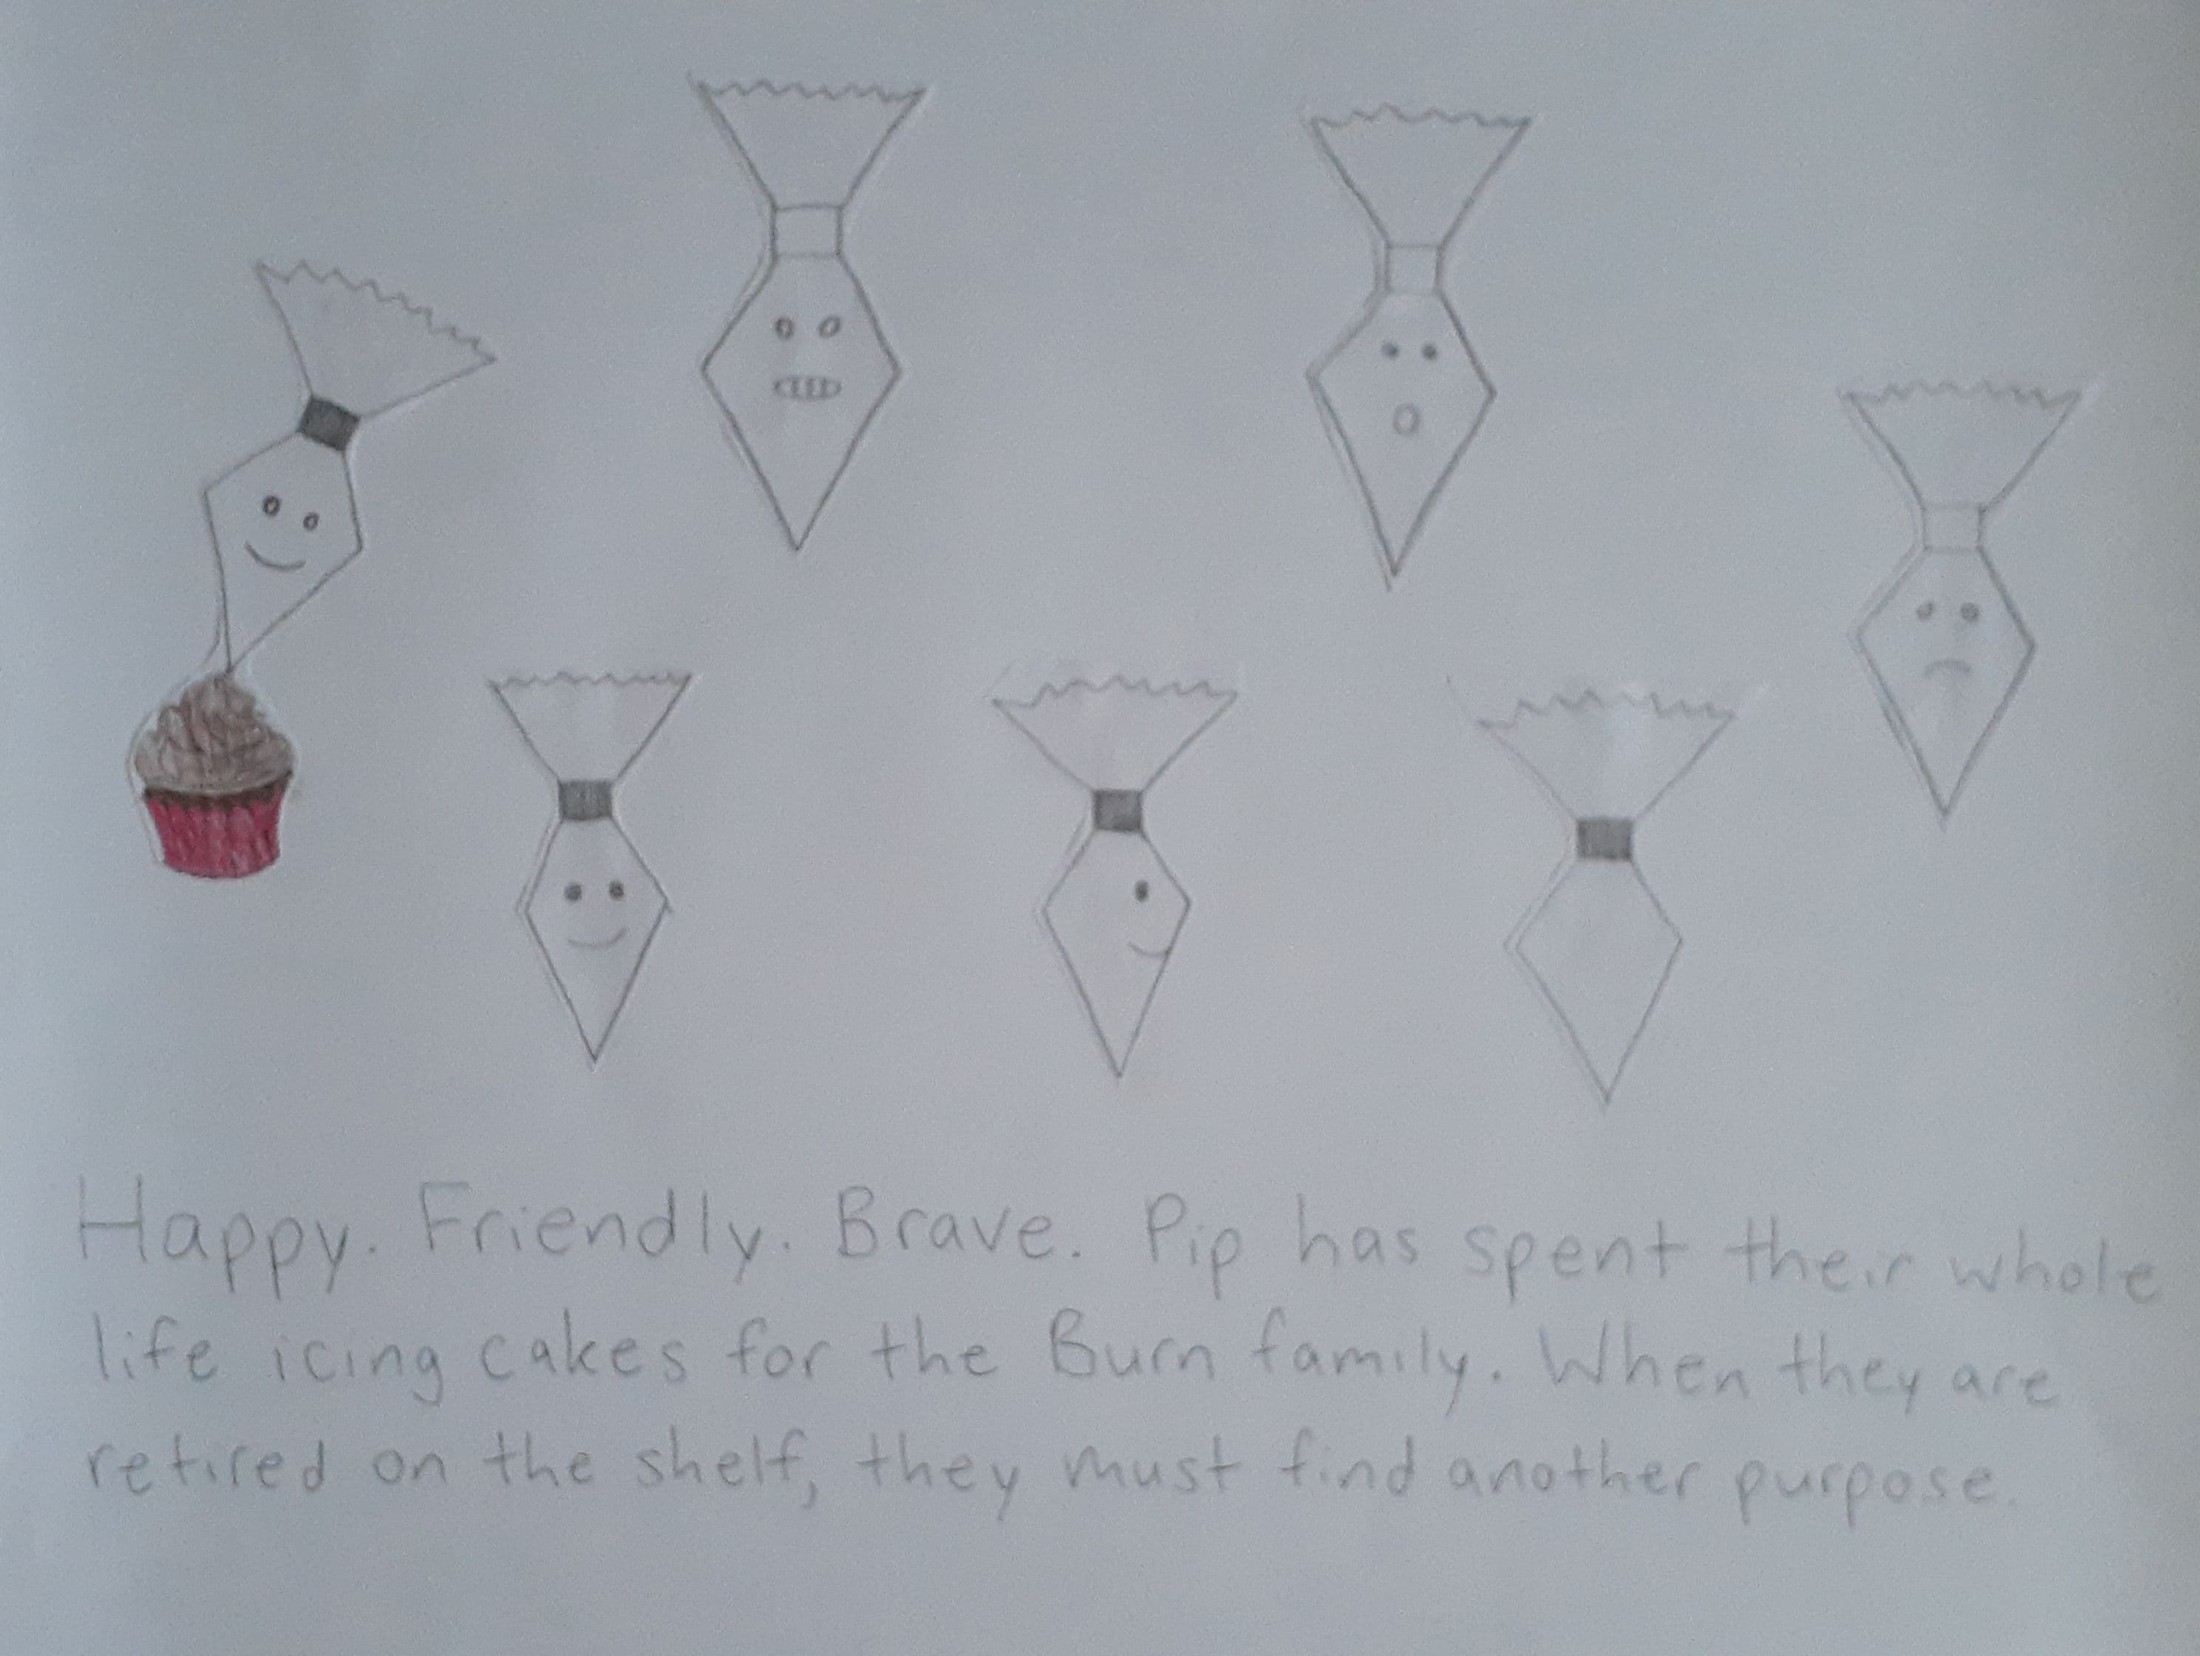 Happy. Friendly. Brave. Pip has spent their whole
life icing cakes for the Burn family. When they are
retired on the shelf, they must find another purpose.